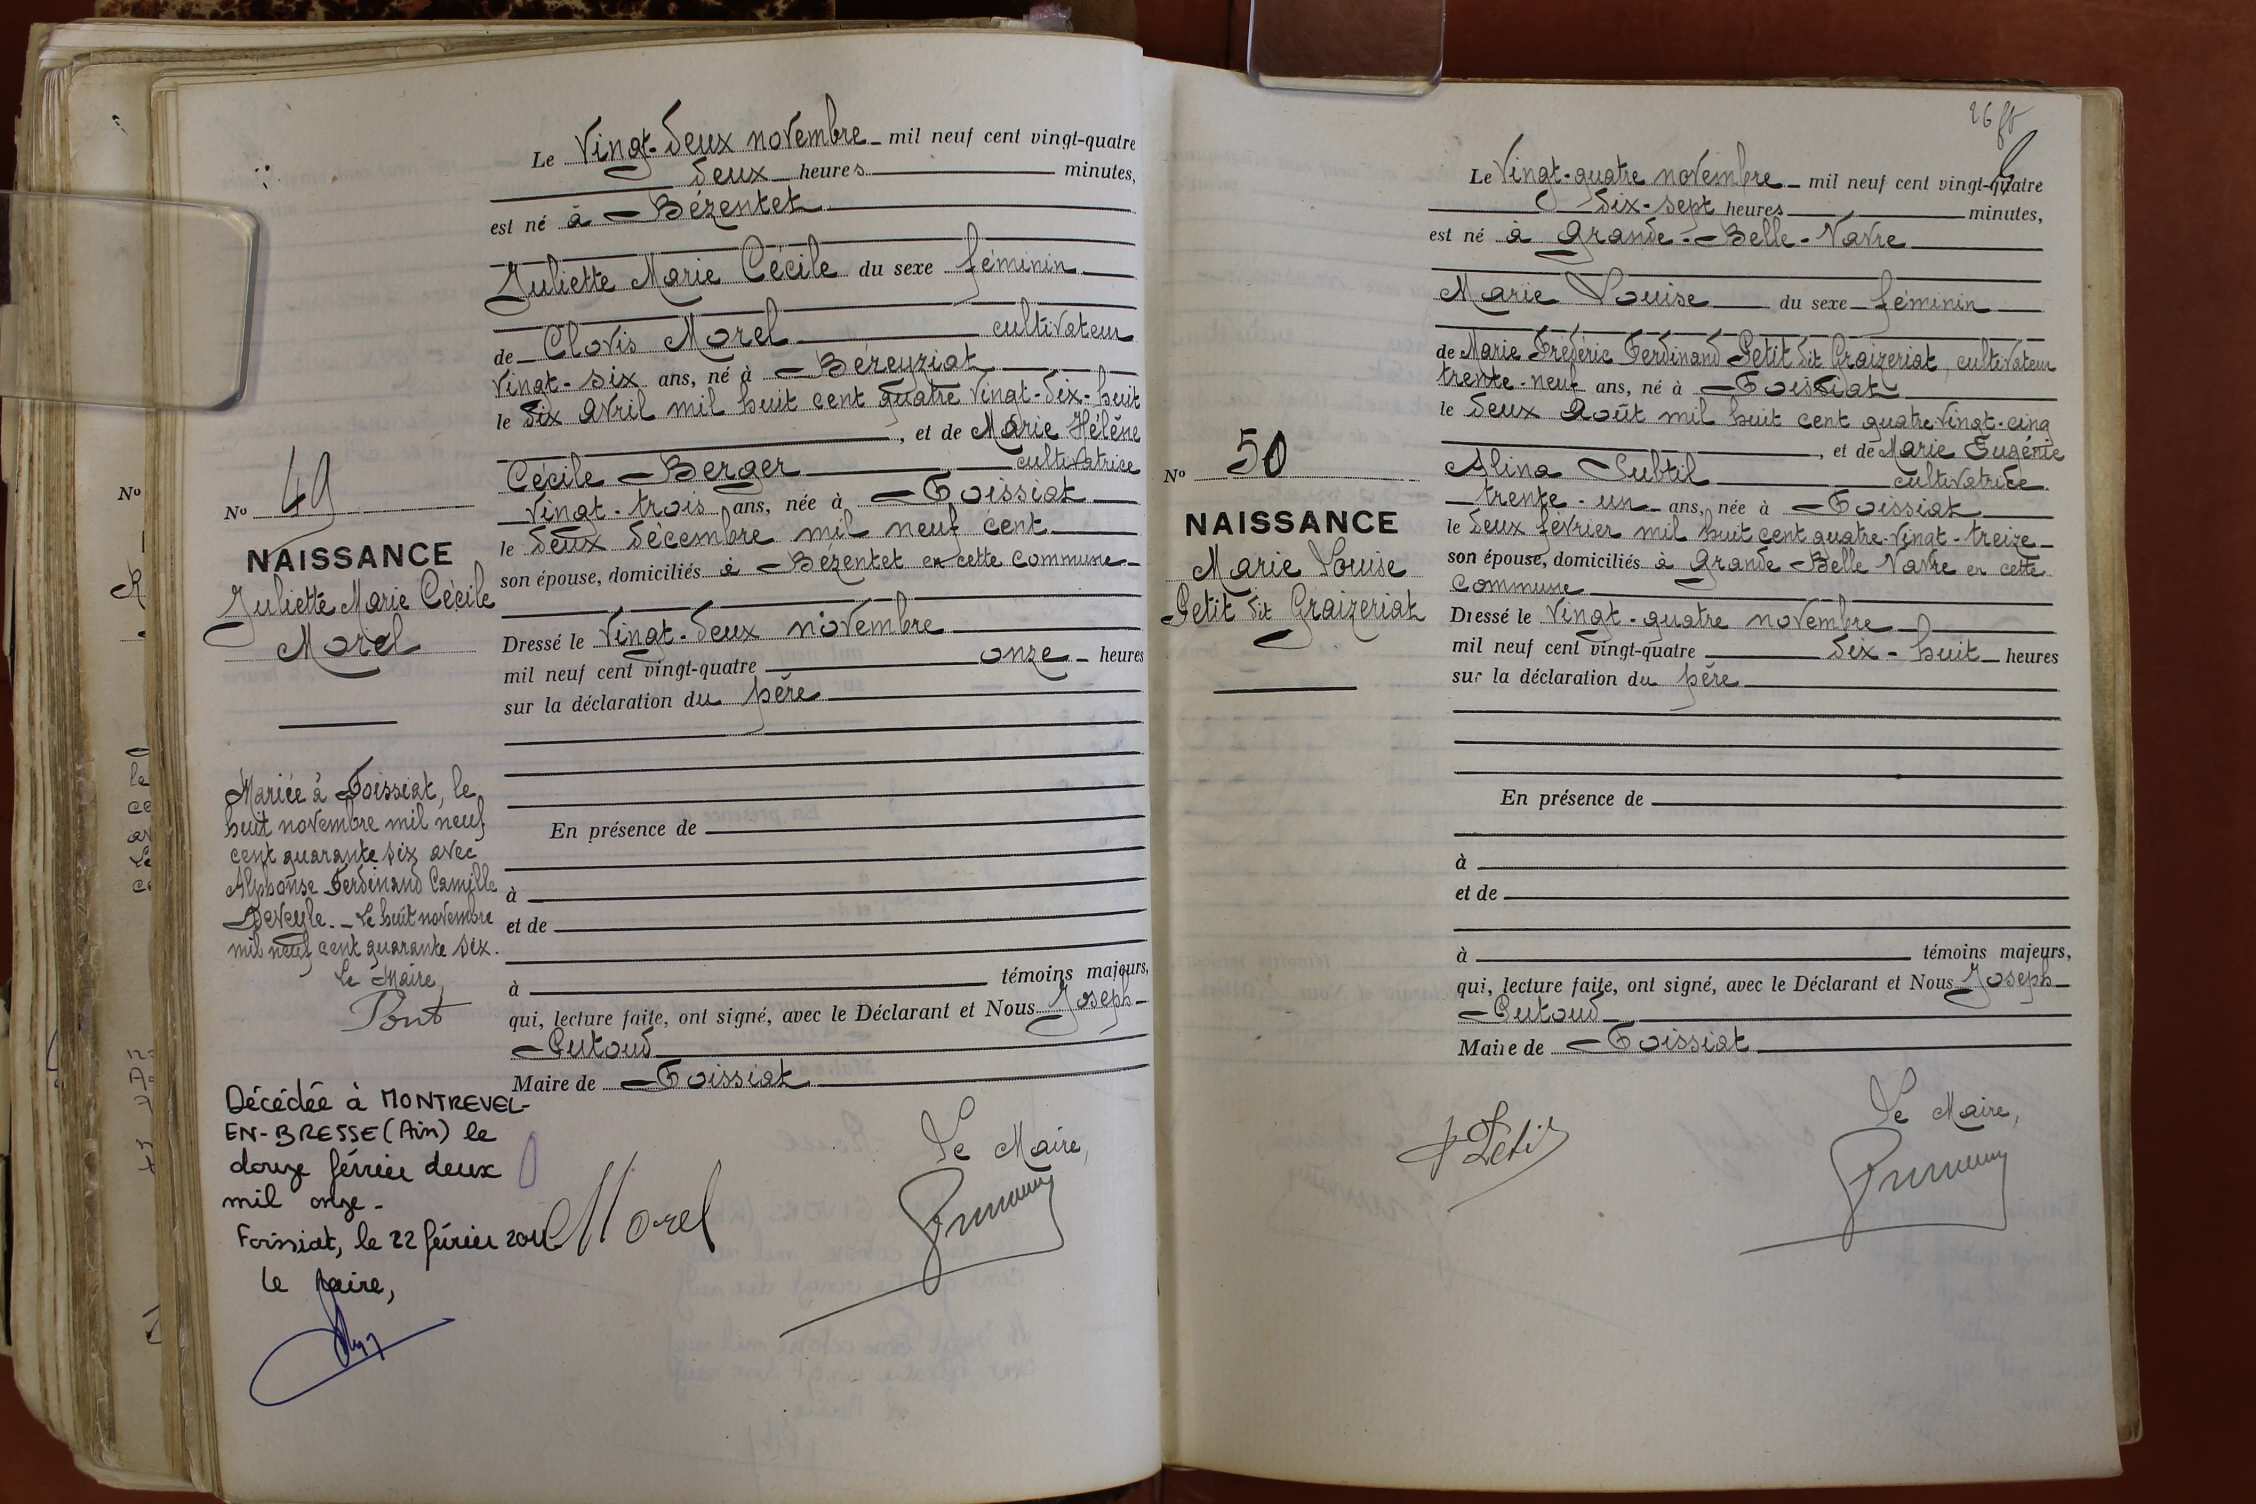 Le Vingt-deux novembre mil neuf cent vingt-quatre
deux heures minutes,
est né à Bézentet
Juliette Marie Cécile du sexe féminin
de Clovis Morel cultivateur
vingt-six ans, né à Béreyziat
le six avril mil huit cent quatre vingt-dix-huit
, et de Marie Hélène
Cécile Berger cultivatrice
vingt-trois ans, née à Foissiat
le deux décembre mil neuf cent
son épouse, domiciliés à Bézentet en cette commune
Dressé le vingt-deux novembre
mil neuf cent vingt-quatre onze heures
sur la déclaration du père
En présence de
à
et de
à témoins majeurs,
qui, lecture faite, ont signé, avec le Déclarant et Nous Joseph
Putoud
Maire de Foissiat
Le Maire,
Morel
No 49
NAISSANCE
Juliette Marie Cécile
Morel
Mariée à Foissiat, le
huit novembre mil neuf
cent quarante six avec
Alphonse Ferdinand Camille
Deveyle. Le huit novembre
mil neuf cent quarante six.
Le Maire,
Pont
Décédée à MONTREVEL-
EN-BRESSE (Ain) le
douze février deux
mil onze.
Foissiat, le 22 février 2011
Le Maire,
No
26
Le Vingt-quatre novembre mil neuf cent vingt-quatre
dix-sept heures minutes,
est né à Grande-Belle-Navre
Marie Louise du sexe féminin
de Marie Frédéric Ferdinand Petit dit Graizeriat, cultivateur
trente-neuf ans, né à Foissiat
le deux Août mil huit cent quatre-vingt-cinq
, et de Marie Eugénie
Alina Subtil cultivatrice
trente-un ans, née à Foissiat
le deux février mil huit cent quatre-vingt-treize
son épouse, domiciliés à Grande Belle Navre en cette
commune
Dressé le vingt-quatre novembre
mil neuf cent vingt-quatre dix-huit heures
sur la déclaration du père
En présence de
à
et de
à témoins majeurs,
qui, lecture faite, ont signé, avec le Déclarant et Nous Joseph
Putoud
Maire de Foissiat
Le Maire,
Petit
No 50
NAISSANCE
Marie Louise
Petit dit Graizeriat